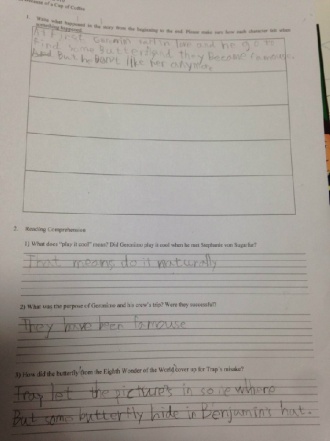 of a Cup of Coffee
1. Write what happened in the story from the beginning to the end. Please make sure how each character felt when
something happened.
At first, Geronimo
And some butterflied they became famous.
And But he dont like her anymore
2. Reading Comprehension
1) What does "play it cool" mean? Did Geronimo play it cool when he met Stephanie von Sugarfur?
That means do it naturally
2) What was the purpose of Geronimo and his crew's trip? Were they successful?
They have been famouse
3) How did the butterfly from the Eighth Wonder of the World cover up for Trap's mistake?
Trap let the pictures in some where
But some butterfly hide in Benjamin's hat.